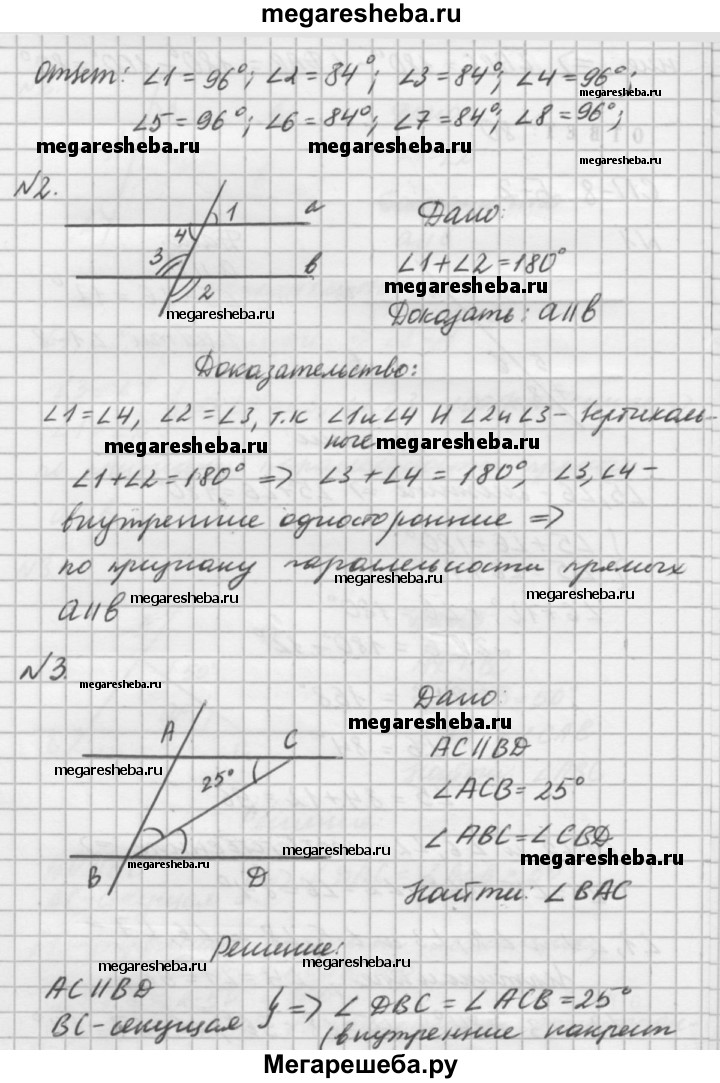 megaresheba.ru
Ответ: ∠1 = 96°; ∠2 = 84°; ∠3 = 84°; ∠4 = 96°;
megaresheba.ru
∠5 = 96°; ∠6 = 84°; ∠7 = 84°; ∠8 = 96°;
megaresheba.ru megaresheba.ru megaresheba.ru
№2.
1 a
4
3 b
2
megaresheba.ru
Дано:
∠1+∠2=180°
megaresheba.ru
Доказать: a∥b
Доказательство:
∠1=∠4, ∠2=∠3, т.к ∠1и∠4 и ∠2и∠3 – вертикаль-
megaresheba.ru ные megaresheba.ru
∠1+∠2=180° => ∠3+∠4 = 180°, ∠3,∠4 –
внутренние односторонние =>
по признаку параллельности прямых
megaresheba.ru
megaresheba.ru megaresheba.ru
a∥b
№3.
megaresheba.ru
A C
megaresheba.ru
25°
megaresheba.ru
B megaresheba.ru D
Дано:
megaresheba.ru
AC∥BD
∠ACB = 25°
∠ABC=∠CBD
megaresheba.ru
Найти: ∠BAC
Решение:
megaresheba.ru megaresheba.ru
AC∥BD
BC-секущая } => ∠DBC = ∠ACB = 25°
(внутренние накрест
Мегарешеба.ру